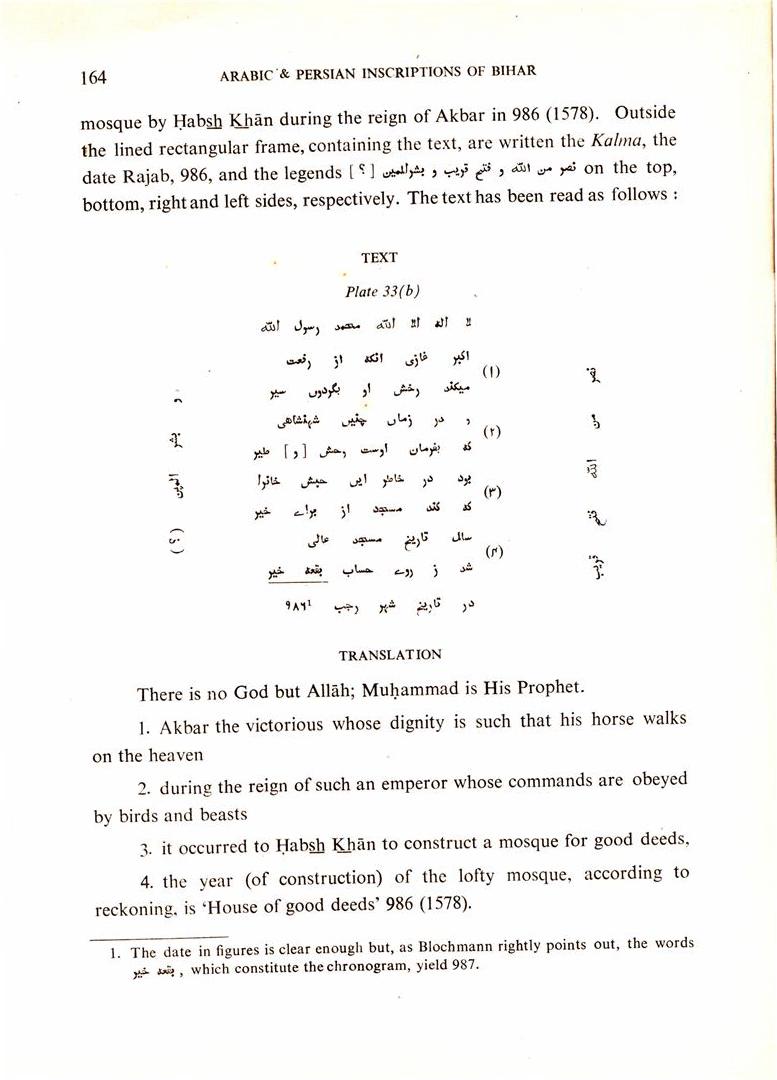 164 ARABIC & PERSIAN INSCRIPTIONS OF BIHAR
mosque by Ḥabsh Khān during the reign of Akbar in 986 (1578). Outside
the lined rectangular frame, containing the text, are written the Kalma, the
date Rajab, 986, and the legends [ ؟ ] نصر من الله و فتح قريب و بشرالمومنين on the top,
bottom, right and left sides, respectively. The text has been read as follows :
TEXT
Plate 33(b)
لا اله الا الله محمد رسول الله
اكبر غازى انكه از رفعت
(۱)
ميكند رخش او بگردون سير
و در زمان چنين شهنشاهى
(۲)
كه بفرمان اوست رحش [و] طير
بود در خاطر اين حبش خانرا
(۳)
كه كند مسجد از براے خير
سال تاريخ مسجد عالى
(۴)
شد ز روے حساب بقعه خير
در تاريخ شهر رجب ۹۸۶1
TRANSLATION
There is no God but Allāh; Muḥammad is His Prophet.
1. Akbar the victorious whose dignity is such that his horse walks
on the heaven
2. during the reign of such an emperor whose commands are obeyed
by birds and beasts
3. it occurred to Ḥabsh Khān to construct a mosque for good deeds,
4. the year (of construction) of the lofty mosque, according to
reckoning, is ‘House of good deeds’ 986 (1578).
1. The date in figures is clear enough but, as Blochmann rightly points out, the words
بقعه خير , which constitute the chronogram, yield 987.